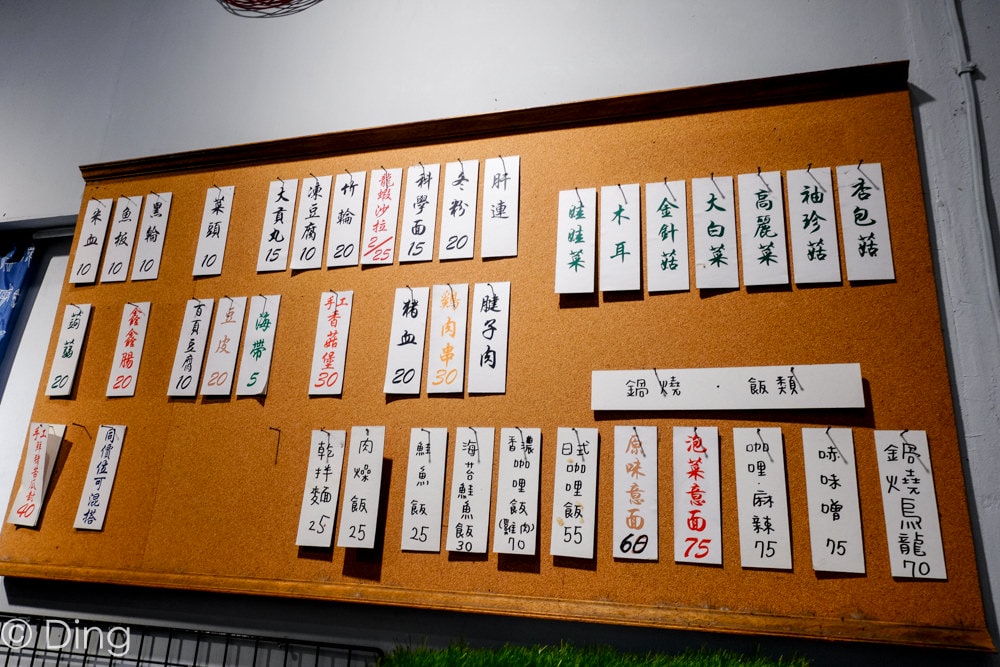 米血 10
魚板 10
黑輪 10
菜頭 10
大貢丸 15
凍豆腐 10
竹輪 20
龍蝦沙拉 2/25
科學面 15
冬粉 20
肝連
娃娃菜
木耳
金針菇
大白菜
高麗菜
袖珍菇
杏包菇
蒟蒻 20
鑫鑫腸 20
百頁豆腐 10
豆皮 20
海帶 5
手工香菇堡 30
豬血 20
鷄肉串 30
腱子肉
鍋燒・飯類
40
同價位可混搭
乾拌麵 25
肉燥飯 25
鮭魚飯 25
海苔鮭魚飯 30
香濃咖哩飯(雞肉) 70
日式咖哩飯 55
原味意面 60
泡菜意面 75
咖哩・麻辣 75
味噌 75
鍋燒烏龍 70
© Ding